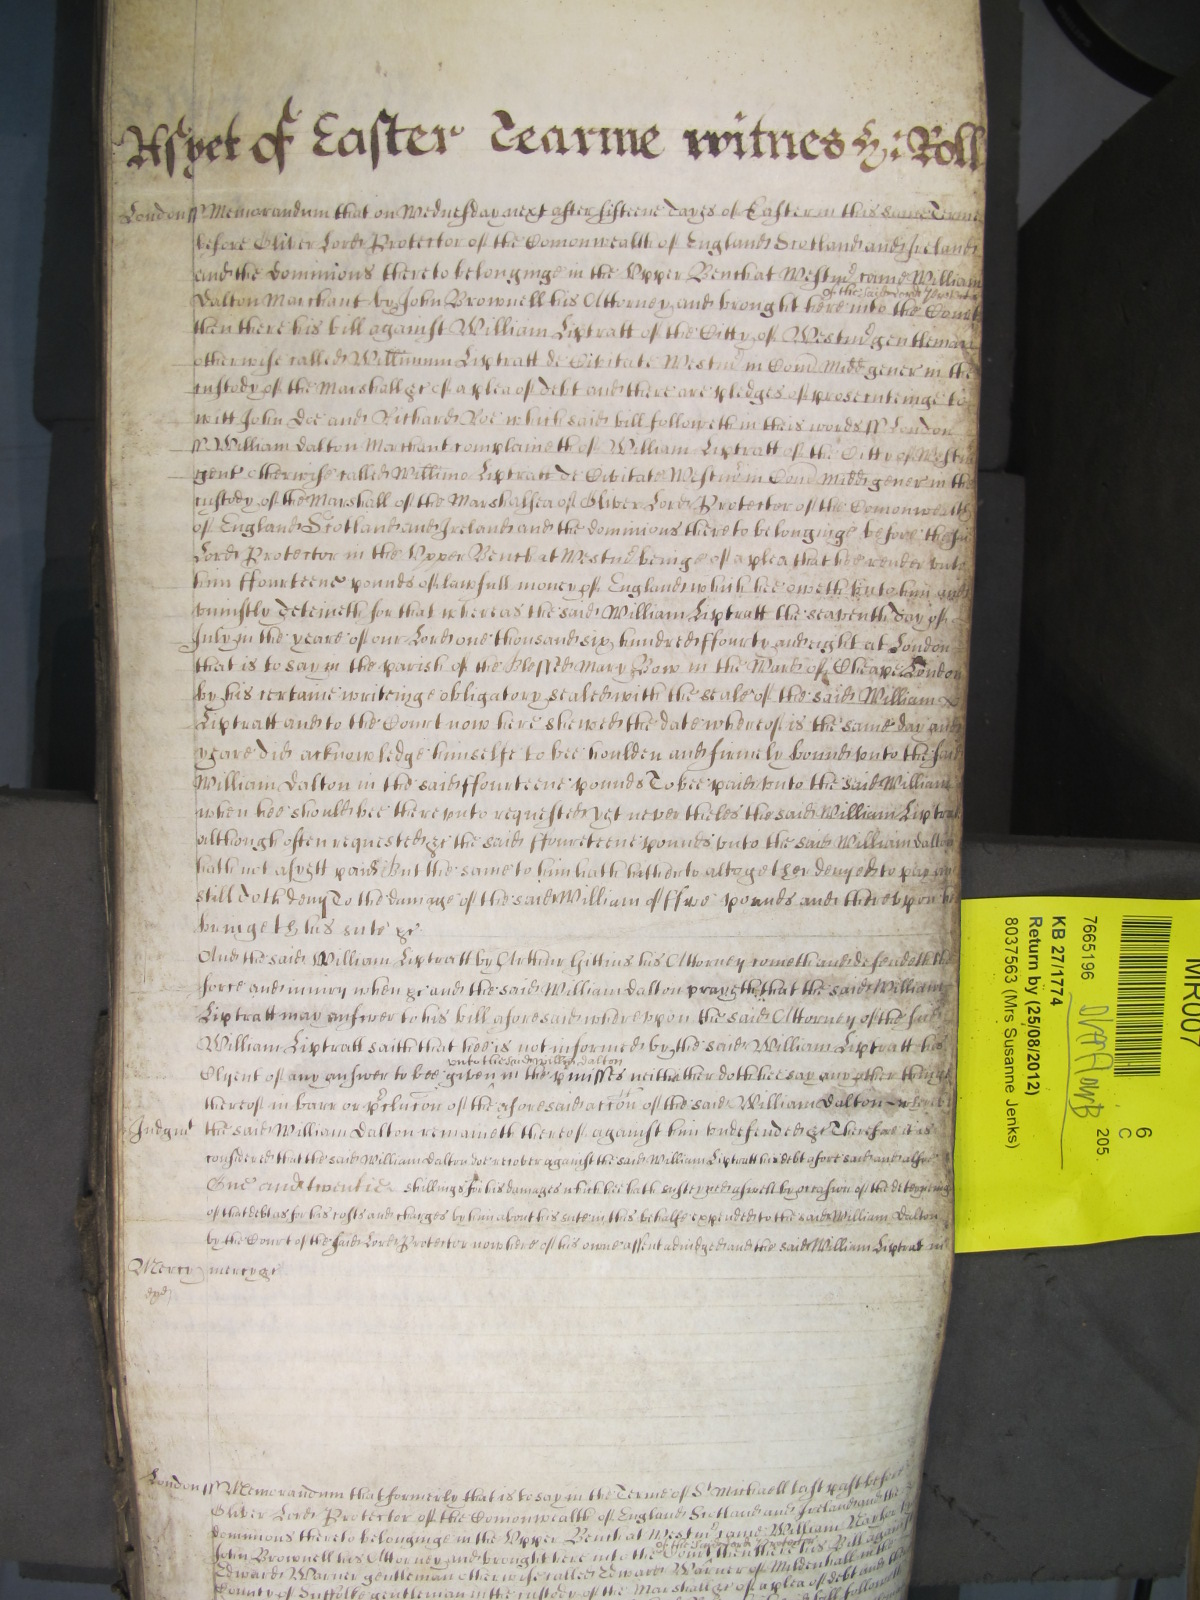 As yet of Easter Tearme witnes &: Roll
London ss Memorandum that on Wednesday next after fifteene dayes of Easter in this same Terme
before Oliver Lord Protector of the Comonwealth of England Scotland and Ireland
and the dominions thereto belonginge in the Upper Bench at Westmr came William
of the said Lord Protector
Dalton Marchant by John Brownell his Attorney and brought here into the Court
then there his bill against William Liptratt of the Citty of Westmr gentleman
otherwise called Willimum Liptratt de Civitate Westmr in Com Midd gener in the
custody of the Marshall &c of a plea of debt and there are pledges of prosecuteinge to
witt John Doe and Richard Roe which said bill followeth in theis words ss London
ss William Dalton Marchant complaineth of William Liptratt of the Citty of Westmr
gent otherwise called Willimo Liptratt de Civitate Westmr in Com Midd gener in the
custody of the Marshall of the Marshalsea of Oliver Lord Protector of the Comonwealth
of England Scotland and Ireland and the dominions thereto belonginge before the said
Lord Protector in the Upper Bench at Westmr beinge of a plea that hee render unto
him ffourteene pounds of lawfull money of England which hee oweth unto him and
uniustly deteineth for that whereas the said William Liptratt the seaventh day of
July in the yeare of our Lord one thousand six hundred ffourty and eight at London
that is to say in the parish of the blessed Mary Bow in the Ward of Cheape London
by his certaine writeinge obligatory sealed with the seale of the said William
Liptratt and to the Court now here shewed the date whereof is the same day and
yeare did acknowledge himselfe to bee houlden and firmely bound unto the said
William Dalton in the said ffourteene pounds To bee paid unto the said William
when hee should bee thereunto requested yet nevertheles the said William Liptratt
although often requested &c the said ffourteene pounds unto the said William Dalton
hath not as yett paid But the same to him hath hitherto altogether denyed to pay and
still doth deny To the damage of the said William of ffive pounds and thereupon hee
bringeth his sute &c
And the said William Liptratt by Arthur Gittins his Attorney cometh and defendeth the
force and iniury when &c and the said William Dalton prayeth that the said William
Liptratt may answer to his bill aforesaid whereupon the said Attorney of the said
William Liptratt saith that hee is not informed by the said William Liptratt his
unto the said Willm Dalton
Clyent of any answer to bee given in the pmisses neither doth hee say any other thinge
thereof in barr or pclucon of the aforesaid accon of the said William Dalton whereby
Judgmt the said William Dalton remaineth thereof against him undefended &c Therefore it is
considered that the said William Dalton doe recover against the said William Liptratt his debt aforesaid and alsoe
One and twentie shillings for his damages which hee hath susteyned aswell by occasion of the deteyninge
of that debt as for his costs and charges by him about his sute in this behalfe expended to the said William Dalton
by the Court of the said Lord Protector now here of his owne assent adiudged and the said William Liptratt in
Mercy mercy &c
London ss Memorandum that formerly that is to say in the Terme of St Michaell last past before
Oliver Lord Protector of the Comonwealth of England Scotland and Ireland and the
dominions thereto belonginge in the Upper Bench at Westmr came William
of the said Lord Protector
John Brownell his Attorney and brought here into the Court then there his Bill against
Edward Warner gentleman otherwise called Edward Warner of Mildenhall in the
County of Suffolke gentleman in the custody of the Marshall &c of a plea of debt and
MR007
6
C
205.
7665196
KB 27/1774
Return by (25/08/2012)
8037563 (Mrs Susanne Jenks)